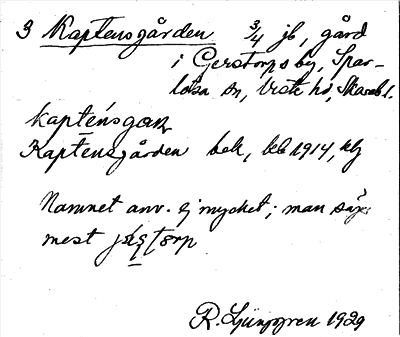 3 Kaptensgården 3/4 jb, gård
i Gerstorps by, Spar-
lösa sn, Viste hd, Skarab. l.
kapténsgaɳ
Kaptensgården bek, lcb 1914, klj
Namnet anv. ej mycket; man säger
mest torp
R. Ljunggren 1929